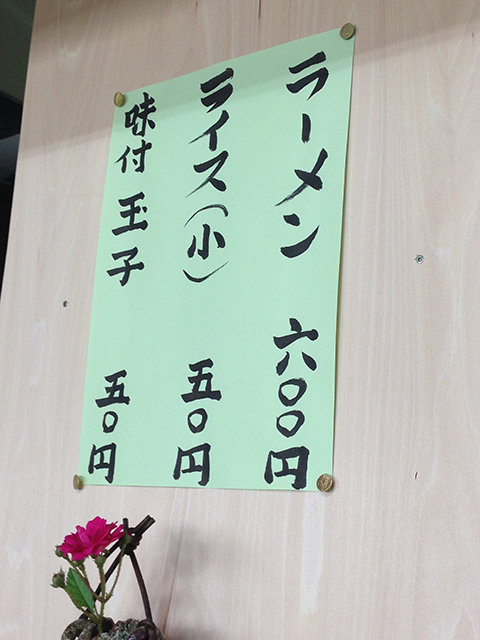 ラーメン 六〇〇円
ライス(小) 五〇円
味付玉子 五〇円